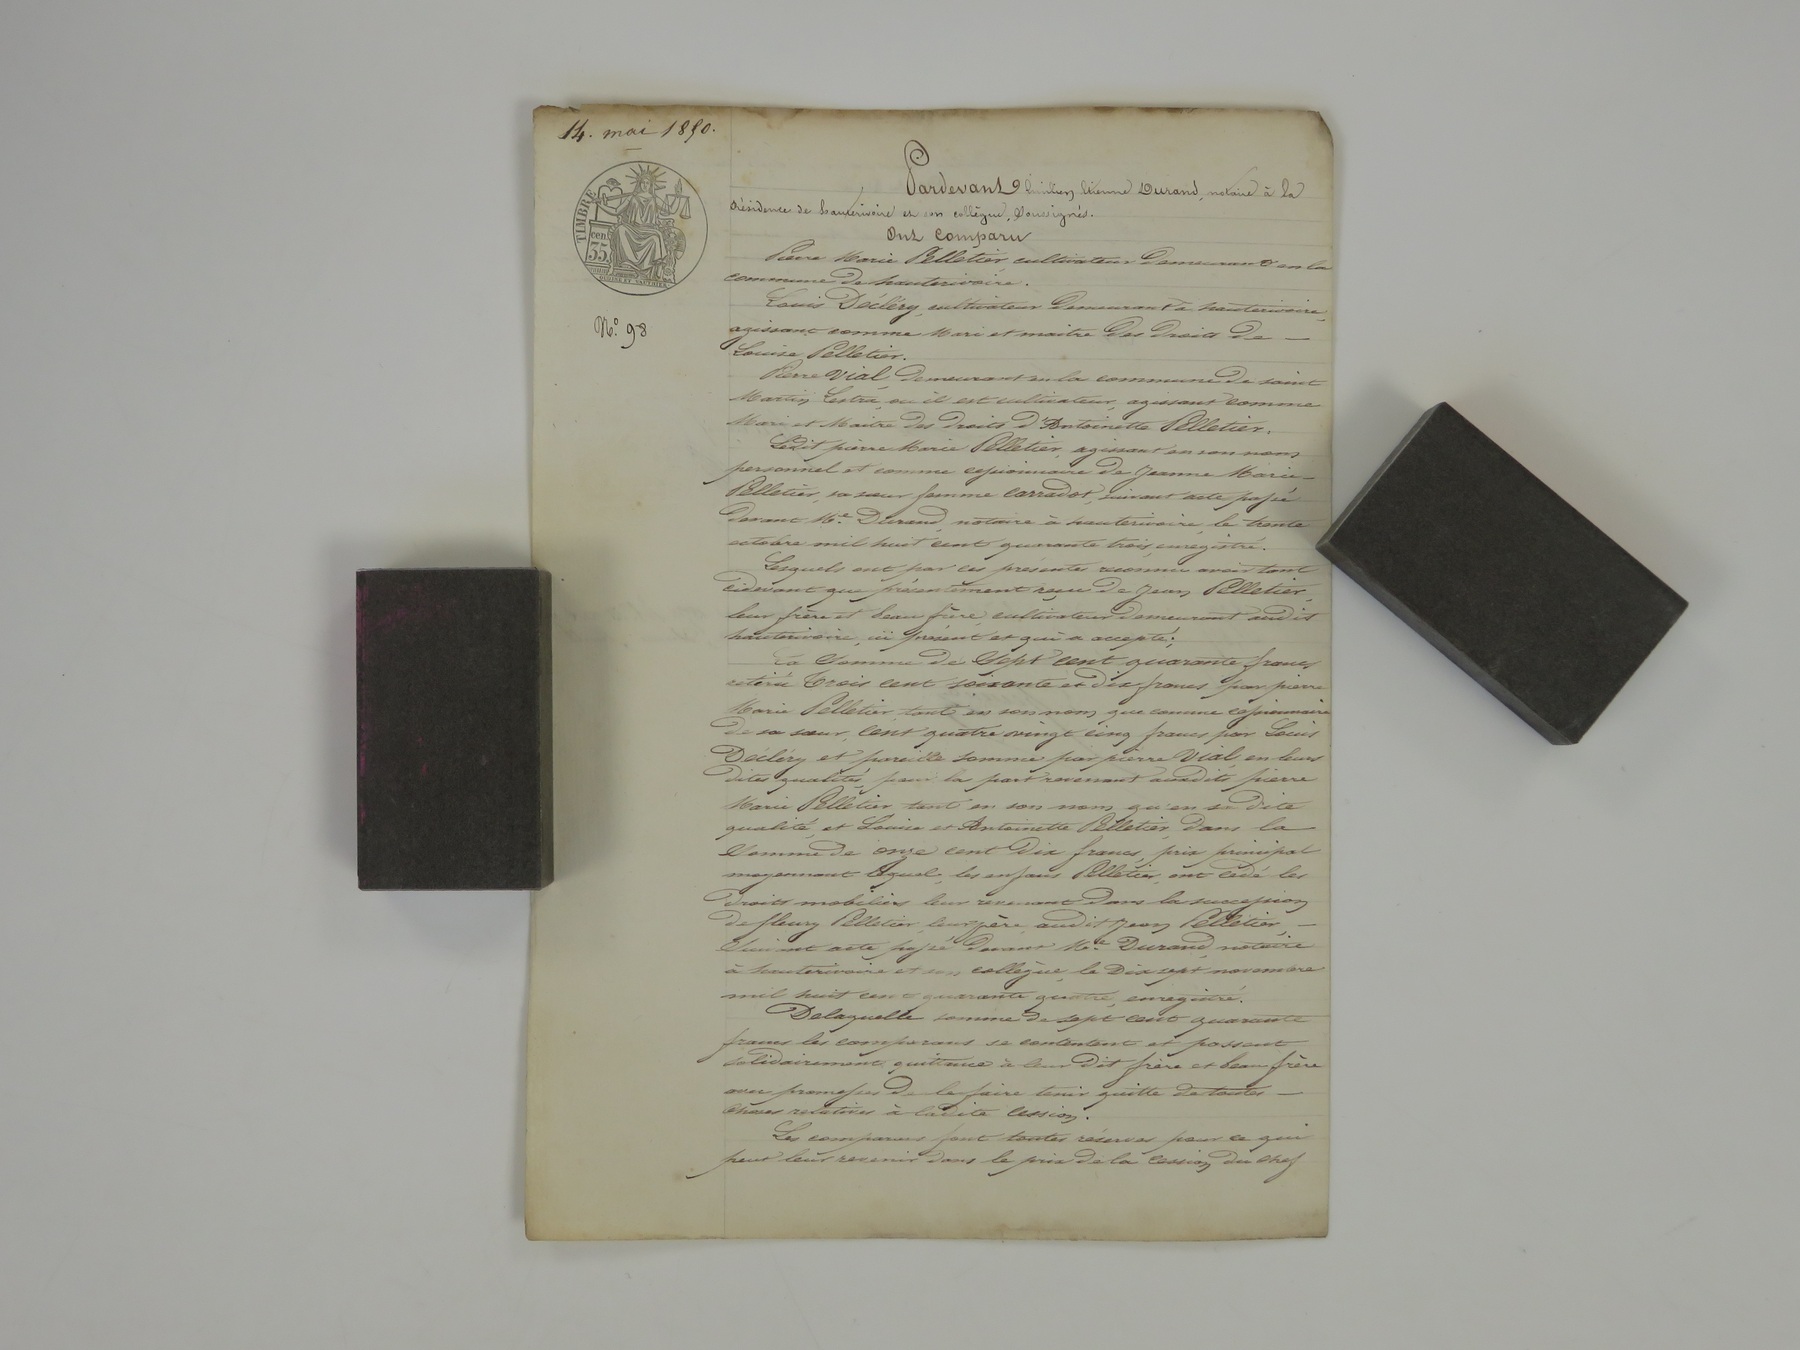 14. mai 1850.
TIMBRE
cen
35
No 98
Pardevant Etienne Durand, notaire à la
résidence de hauterivoire et son collègue, soussignés.
Ont comparu
Pierre Marie Pelletier, cultivateur demeurant en la
commune de hauterivoire.
Louis Décléry, cultivateur demeurant à hauterivoire,
agissant comme Mari et maître des droits de —
Louise Pelletier.
Pierre Vial, demeurant en la commune de saint
Martin Lestra, ou il est cultivateur, agissant comme
Mari et Maitre des droits d'Antoinette Pelletier.
Ledit pierre Marie Pelletier, agissant en son nom
personnel et comme cessionnaire de Jeanne Marie
Pelletier, sa sœur femme Carradot, suivant acte passé
devant Me. Durand, notaire à hauterivoire, le trente
octobre mil huit cent quarante trois, enregistré.
Lesquels ont par ces présentes reconnu avoir tant
cidevant que présentement reçu de Jean Pelletier,
leur frère et beau frère, cultivateur demeurant audit
hauterivoire, ici présent et qui a accepté;
La Somme de Sept cent quarante francs
retiré Trois cent soixante et dix francs par pierre
Marie Pelletier tant en son nom que comme cessionnaire
de sa sœur, Cent quatre vingt cinq francs par Louis
Décléry et pareille somme par pierre Vial, en leurs
dites qualités, pour la part revenant audit pierre
Marie Pelletier tant en son nom qu'en sa dite
qualité, et Louise et Antoinette Pelletier, dans la
Somme de onze cent dix francs, prix principal
moyennant lequel, les enfans Pelletier, ont cédé les
droits mobiliers leur revenant dans la succession
de fleury Pelletier, leur père, audit Jean Pelletier, —
Suivant acte passé devant Me. Durand, notaire
à hauterivoire et son collègue, le Dix sept novembre
mil huit cent quarante quatre, enregistré.
Delaquelle somme de sept cent quarante
francs les comparans se contentent et passent
solidairement quittance à leur dit frère et beau frère
avec promesses de le faire tenir quitte de toutes —
choses relatives à ladite cession.
Les comparans font toutes réserves pour ce qui
peut leur revenir dans le prix de la cession du chef